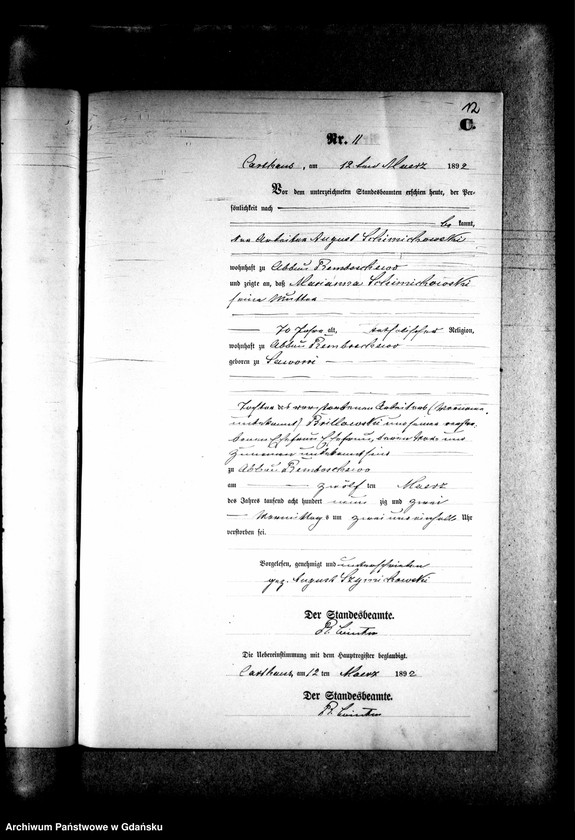 12
C.
Nr. 11
Carthaus, am 12 ten Maerz 1892
Vor dem unterzeichneten Standesbeamten erschien heute, der Per-
sönlichkeit nach
be kannt,
der Arbeiter August
wohnhaft zu Abbau Remboschewo
und zeigte an, daß Marianna
seine Mutter
70 Jahre alt, katholischer Religion,
wohnhaft zu Abbau Remboschewo
geboren zu
Tochter des verstorbenen Arbeiters (Vorname
unbekannt) Brillowski und seiner verstor-
benen Ehefrau, deren Vor- und
Zunamen unbekannt sind
zu Abbau Remboschewo
am zwölf ten Maerz
des Jahres tausend acht hundert neun zig und zwei
Vormittag s um zwei und einhalb Uhr
verstorben sei.
Vorgelesen, genehmigt und unterschrieben
gez. August Szymichowski
Der Standesbeamte.
Die Uebereinstimmung mit dem Hauptregister beglaubigt.
Carthaus, am 12 ten Maerz 1892
Der Standesbeamte.
Archiwum Państwowe w Gdańsku